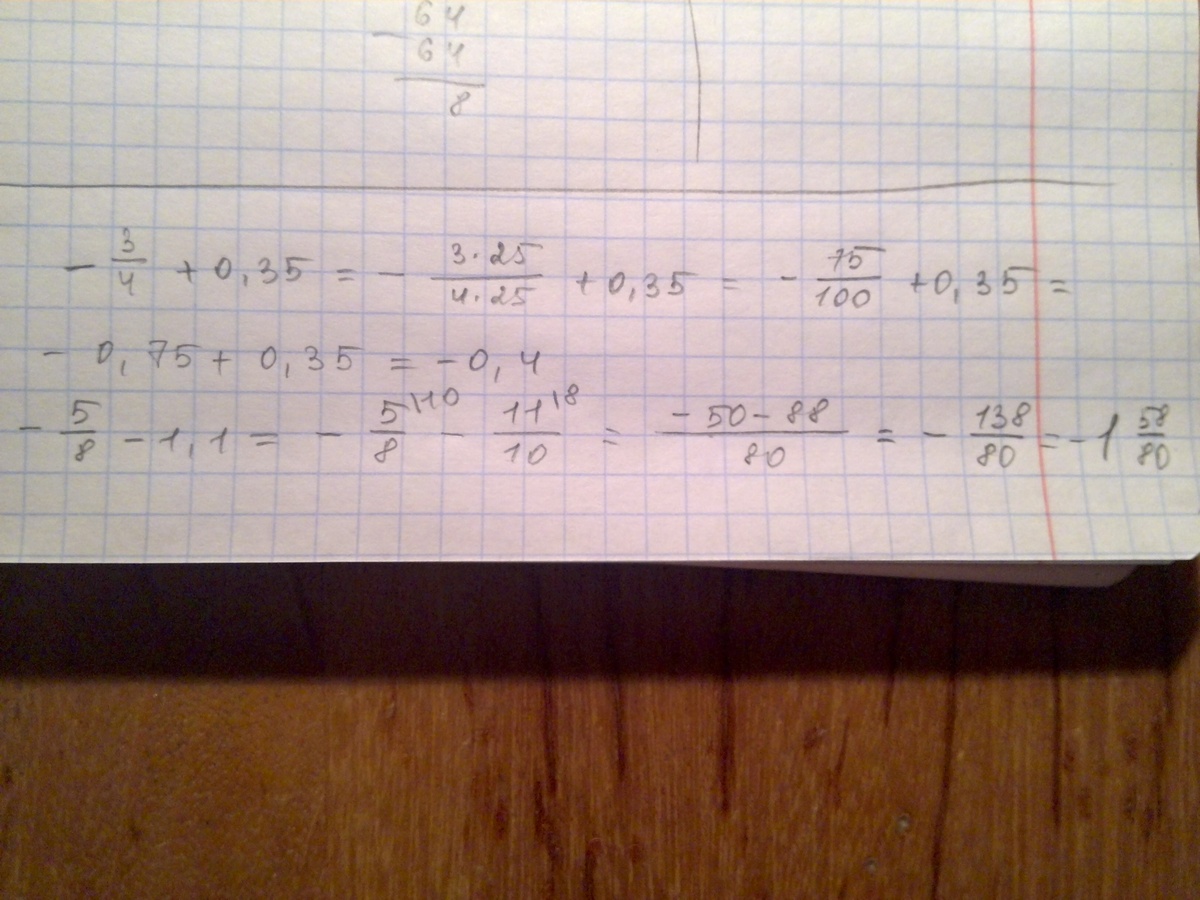 64
- 64
8
- 3/4 + 0,35 = - 3·25/4·25 + 0,35 = - 75/100 + 0,35 =
- 0,75 + 0,35 = - 0,4
- 5/8 - 1,1 = - 5\10/8 - 11\8/10 = -50-88/80 = - 138/80 = -1 58/80